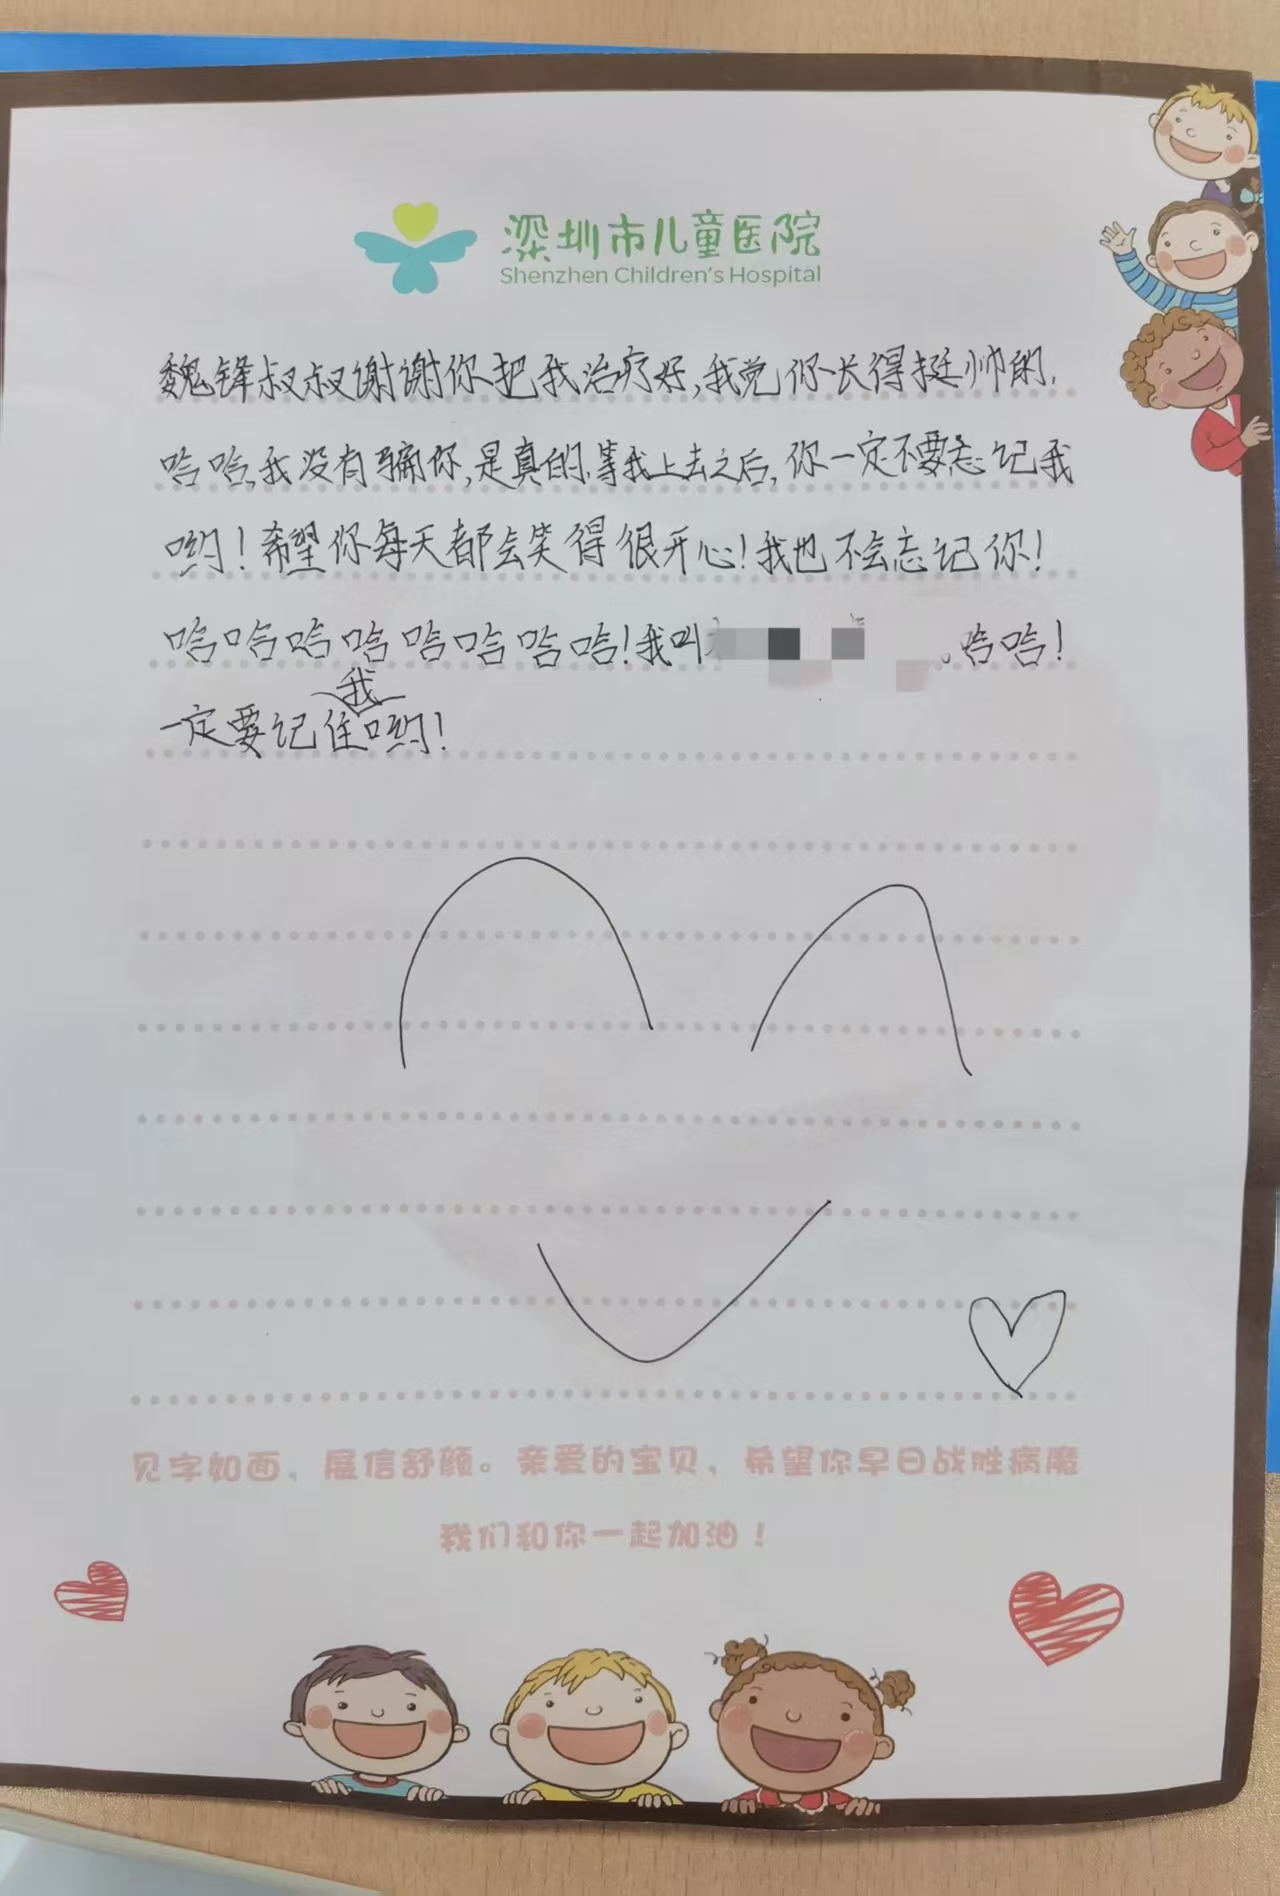 深圳市儿童医院
Shenzhen Children's Hospital
魏锋叔叔谢谢你把我治疗好,我觉你长得挺帅的,
哈哈,我没有骗你,是真的,等我上去之后,你一定不要忘记我
哟!希望你每天都会笑得很开心!我也不会忘记你!
哈哈哈哈哈哈哈哈!我叫 。哈哈!
一定要记住我哟!
见字如面，展信舒颜。亲爱的宝贝，希望你早日战胜病魔
我们和你一起加油！